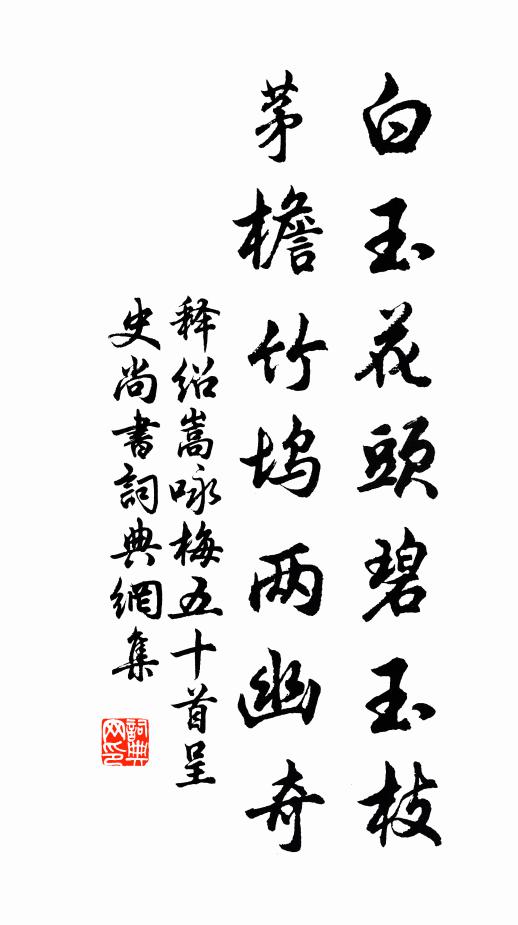 白玉花頭碧玉枝
茅檐竹坞两幽奇
释绍嵩咏梅五十首呈
史尚書詞典網集
詞典
网印